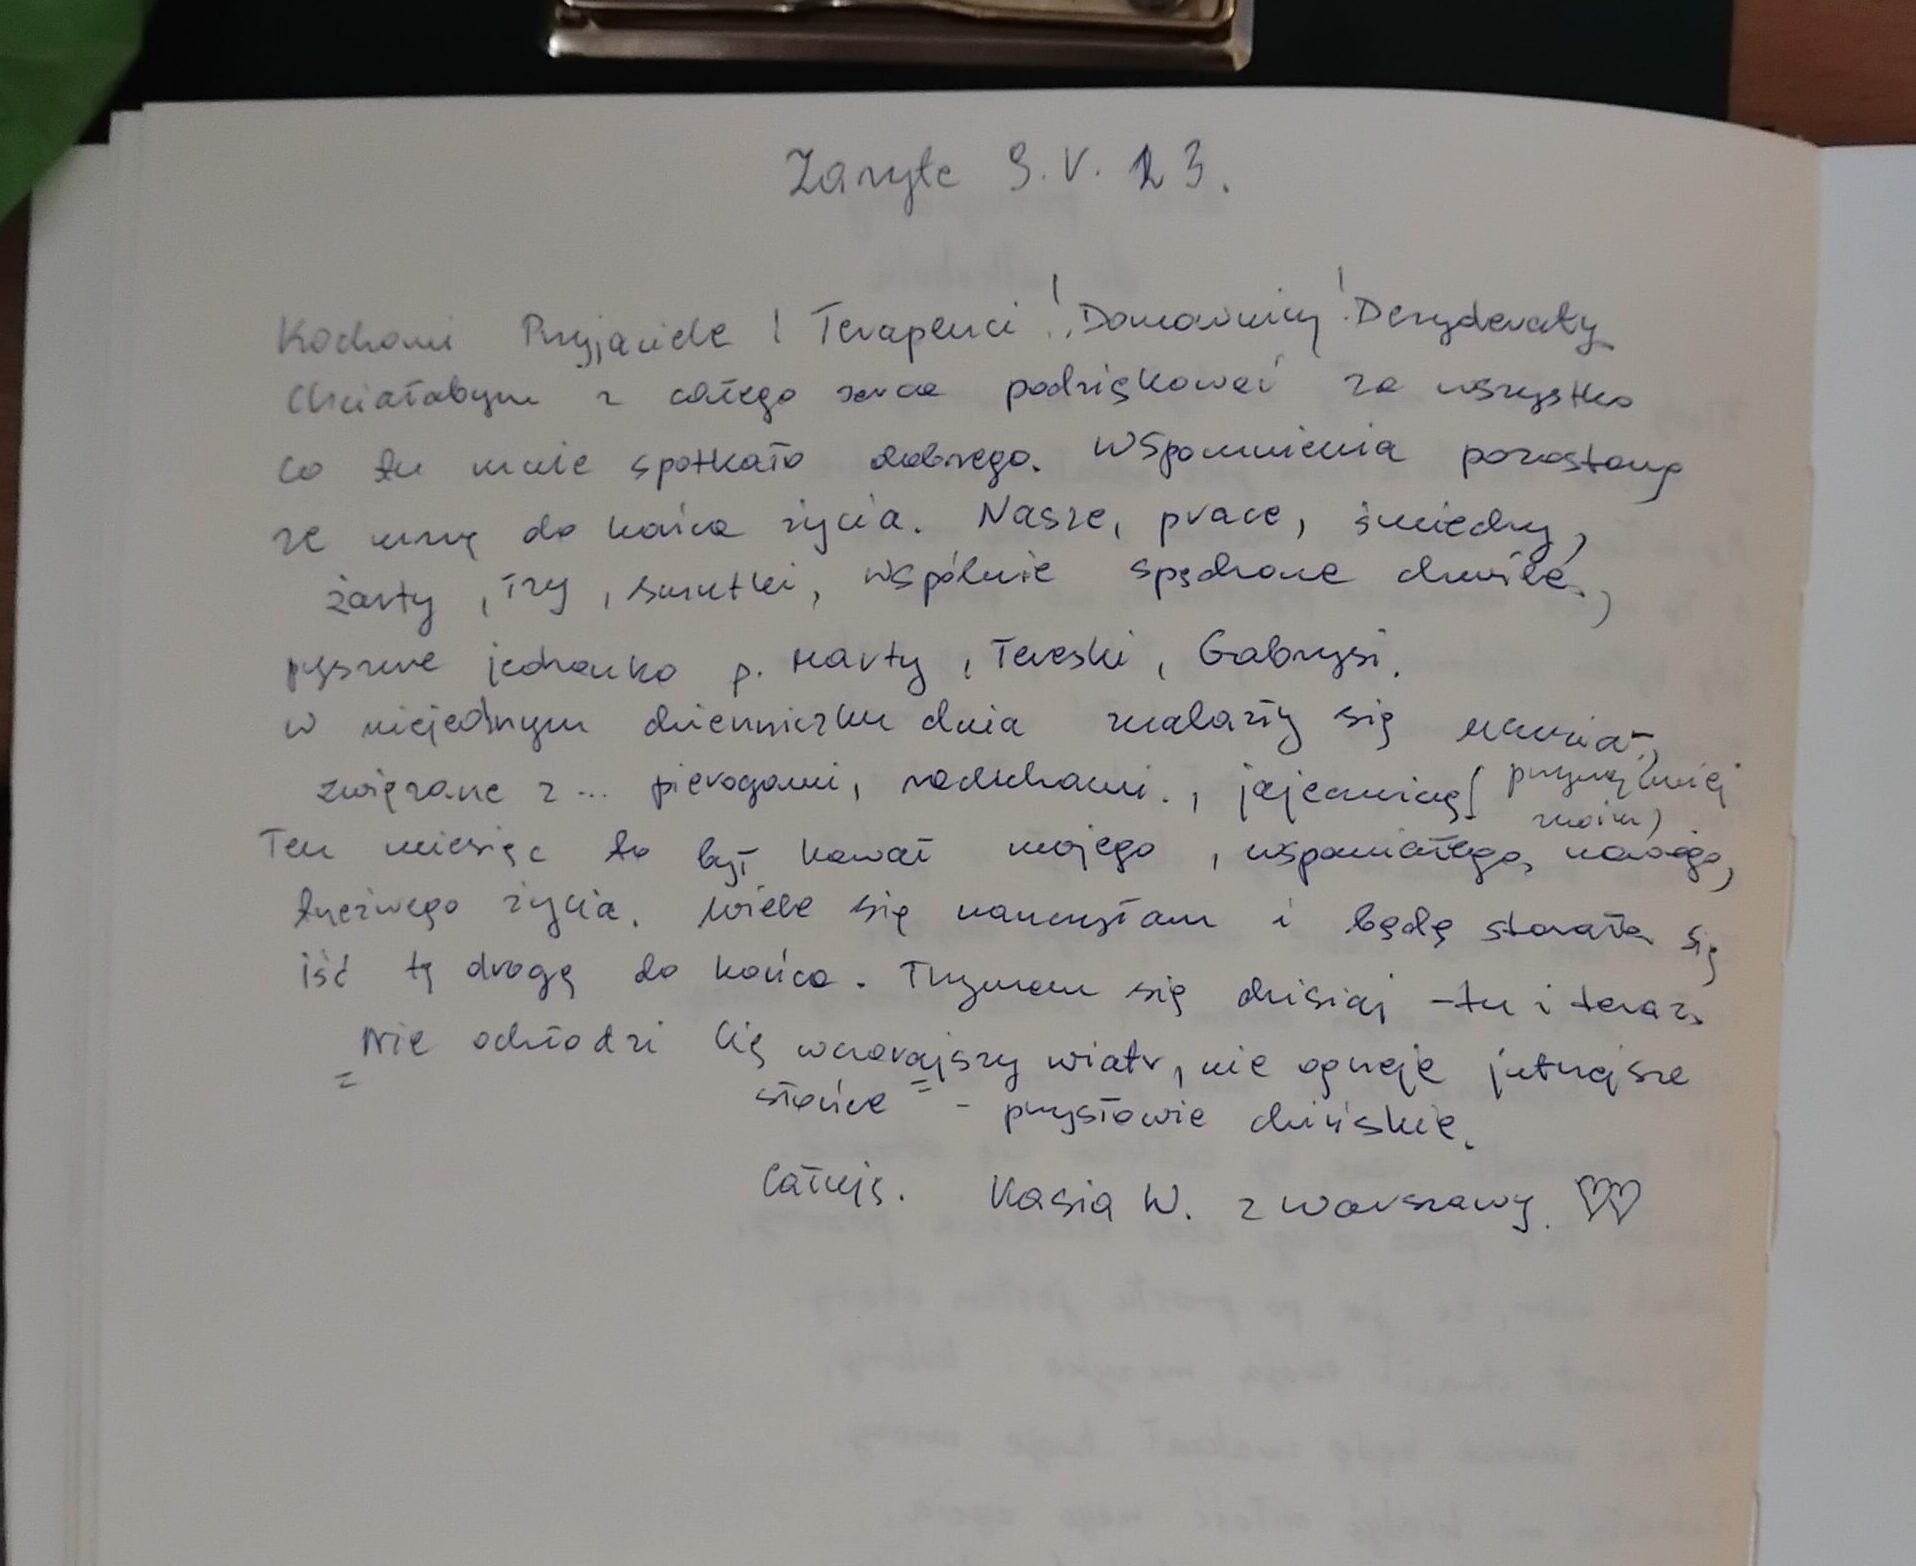 Zaryte 9.V.23.
Kochani Przyjaciele! Terapeuci! Domownicy! Dezyderaty
Chciałabym z całego serca podziękować za wszystko
co tu mnie spotkało dobrego. Wspomnienia pozostaną
ze mną do końca życia. Nasze, prace, śmiechy,
żarty, łzy, smutki, wspólnie spędzone chwile,
pyszne jedzonko p. Marty, Tereski, Gabrysi.
w niejednym dzienniczku dnia znalazły się
związane z... pierogami, racuchami., jajecznicą (przynajmniej
moim)
Ten miesiąc to był kawał mojego, wspaniałego, nowego,
trzeźwego życia. Wiele się nauczyłam i będę starała się
iść tą drogą do końca. Trzymam się dzisiaj - tu i teraz.
"Nie ochłodzi Cię wczorajszy wiatr, nie ogrzeje jutrzejsze
słońce" - przysłowie chińskie.
Całuję. Kasia W. z Warszawy. ♡♡